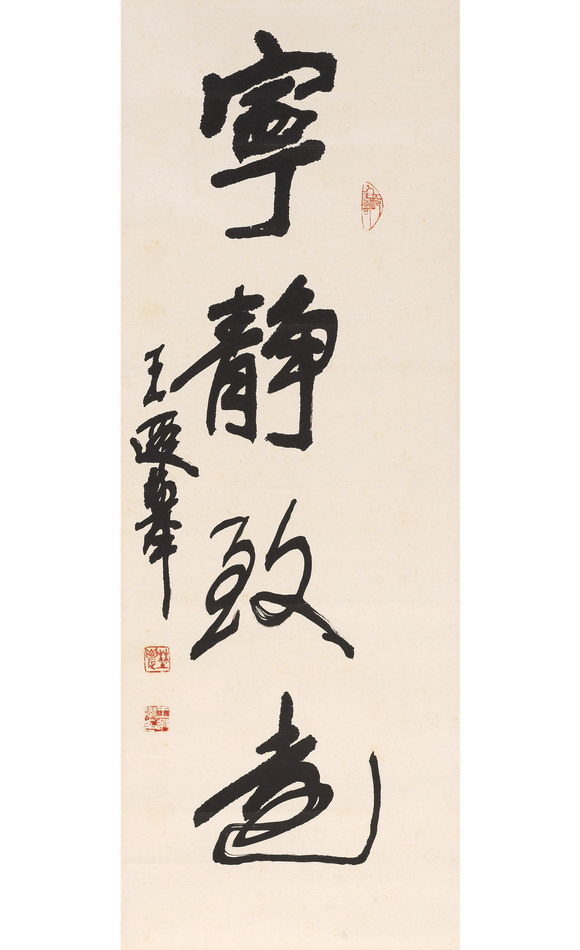 寧静致遠
王遐舉